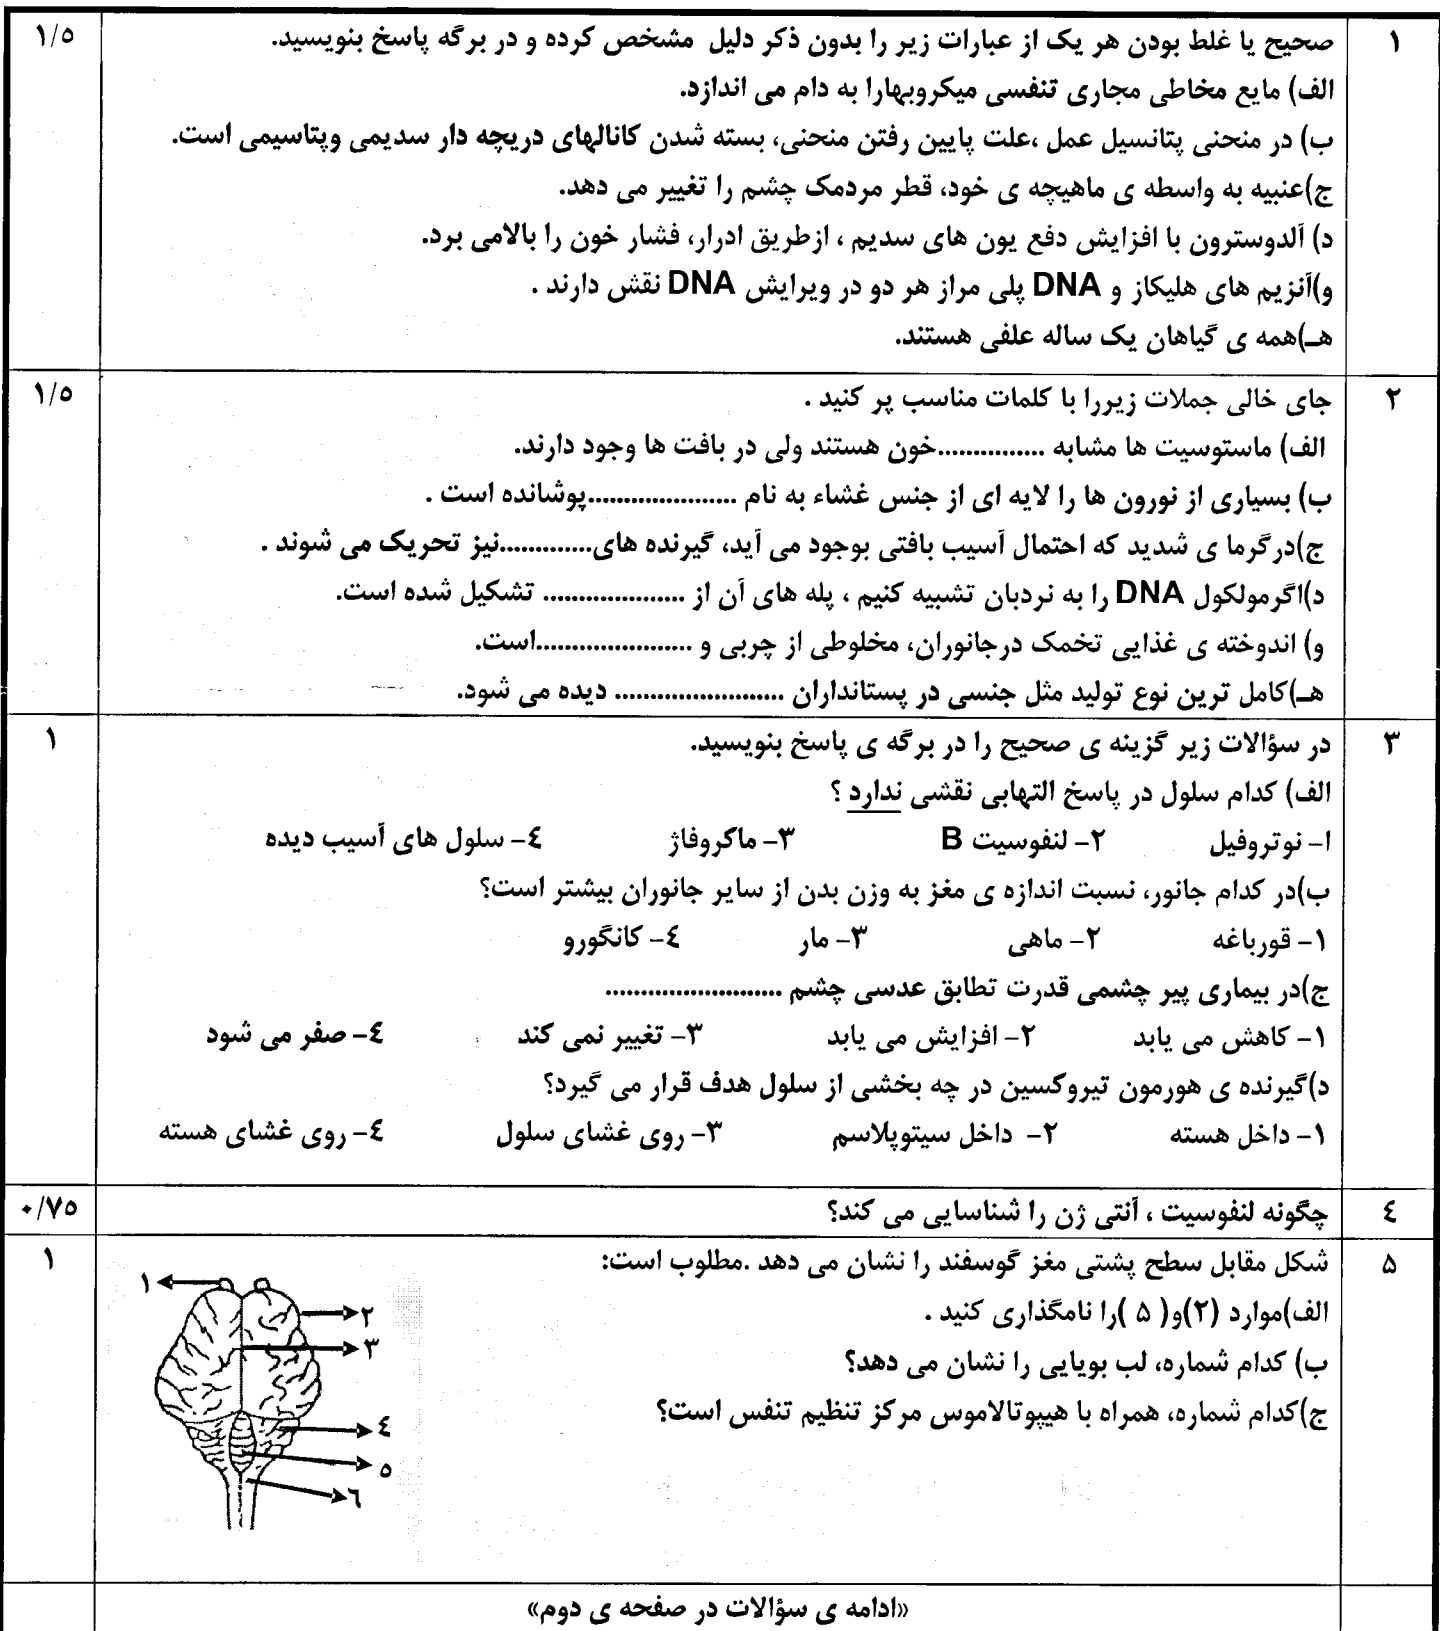 ۱ صحیح یا غلط بودن هر یک از عبارات زیر را بدون ذکر دلیل مشخص کرده و در برگه پاسخ بنویسید. ۱/۵
الف) مایع مخاطی مجاری تنفسی میکروبهارا به دام می اندازد.
ب) در منحنی پتانسیل عمل ،علت پایین رفتن منحنی، بسته شدن کانالهای دریچه دار سدیمی وپتاسیمی است.
ج)عنبیه به واسطه ی ماهیچه ی خود، قطر مردمک چشم را تغییر می دهد.
د) آلدوسترون با افزایش دفع یون های سدیم ، ازطریق ادرار، فشار خون را بالامی برد.
و)آنزیم های هلیکاز و DNA پلی مراز هر دو در ویرایش DNA نقش دارند .
هـ)همه ی گیاهان یک ساله علفی هستند.
۲ جای خالی جملات زیررا با کلمات مناسب پر کنید . ۱/۵
الف) ماستوسیت ها مشابه ...............خون هستند ولی در بافت ها وجود دارند.
ب) بسیاری از نورون ها را لایه ای از جنس غشاء به نام .....................پوشانده است .
ج)درگرما ی شدید که احتمال آسیب بافتی بوجود می آید، گیرنده های.............نیز تحریک می شوند .
د)اگرمولکول DNA را به نردبان تشبیه کنیم ، پله های آن از .................... تشکیل شده است.
و) اندوخته ی غذایی تخمک درجانوران، مخلوطی از چربی و ......................است.
هـ)کامل ترین نوع تولید مثل جنسی در پستانداران ........................ دیده می شود.
۳ در سؤالات زیر گزینه ی صحیح را در برگه ی پاسخ بنویسید. ۱
الف) کدام سلول در پاسخ التهابی نقشی ندارد ؟
ا- نوتروفیل ۲- لنفوسیت B ۳- ماکروفاژ ٤- سلول های آسیب دیده
ب)در کدام جانور، نسبت اندازه ی مغز به وزن بدن از سایر جانوران بیشتر است؟
۱- قورباغه ۲- ماهی ۳- مار ٤- کانگورو
ج)در بیماری پیر چشمی قدرت تطابق عدسی چشم .........................
۱- کاهش می یابد ۲- افزایش می یابد ۳- تغییر نمی کند ٤- صفر می شود
د)گیرنده ی هورمون تیروکسین در چه بخشی از سلول هدف قرار می گیرد؟
۱- داخل هسته ۲- داخل سیتوپلاسم ۳- روی غشای سلول ٤- روی غشای هسته
٤ چگونه لنفوسیت ، آنتی ژن را شناسایی می کند؟ ۰/۷۵
۵ شکل مقابل سطح پشتی مغز گوسفند را نشان می دهد .مطلوب است: ۱
الف)موارد (۲)و( ۵ )را نامگذاری کنید .
ب) کدام شماره، لب بویایی را نشان می دهد؟
ج)کدام شماره، همراه با هیپوتالاموس مرکز تنظیم تنفس است؟
۱
۲
۳
٤
۵
٦
«ادامه ی سؤالات در صفحه ی دوم»